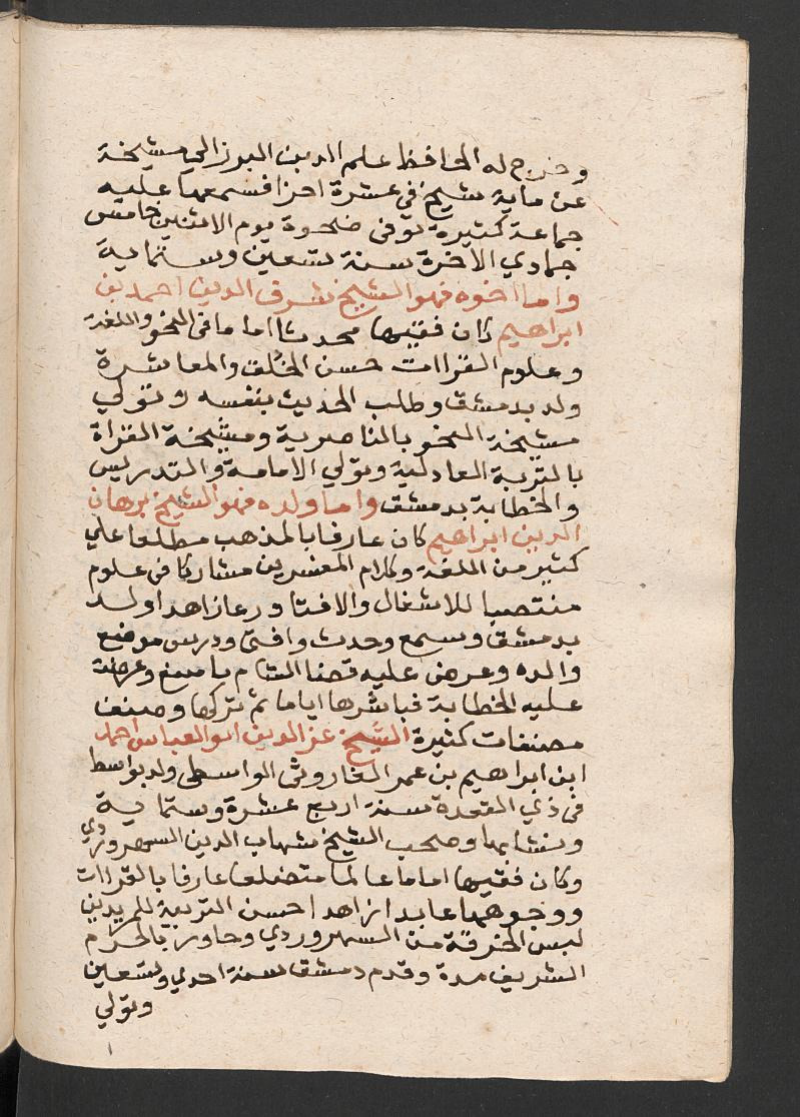 وخرج له الحافظ علم الدين البرزالي مشيخة
عن ماية شيخ في عشرة اجزا فسمعها عليه
جماعة كثيرة توفي ضحوة يوم الاثنين خامس
جمادي الاخرة سنة تسعين وستماية
واما اخوه فهو الشيخ شرف الدين احمد بن
ابراهيم كان فقيها محدثا اماما في النحو واللغة
وعلوم القراات حسن الخلق والمعاشرة
ولد بدمشق وطلب الحديث بنفسه وتولي
مشيخة النحو بالناصرية ومشيخة القراة
بالتربة العادلية وتولي الامامة والتدريس
والخطابة بدمشق واما ولده فهو الشيخ برهان
الدين ابراهيم كان عارفا بالمذهب مطلعا علي
كثير من اللغة وكلام المفسرين مشاركا في علوم
منتصبا للاشغال والافتا ورعا زاهدا ولد
بدمشق وسمع وحدث وافتي ودرس موضع
والده وعرض عليه قضا الشام فامتنع وعرضت
عليه الخطابة فباشرها اياما ثم تركها وصنف
مصنفات كثيرة الشيخ عز الدين ابو العباس احمد
ابن ابراهيم بن عمر الفاروثي الواسطي ولد بواسط
في ذي القعدة سنة اربع عشرة وستماية
ونشا بها وصحب الشيخ شهاب الدين السهروردي
وكان فقيها اماما عالما متضلعا عارفا بالقراات
ووجوهها عابدا زاهدا حسن التربية للمريدين
لبس الخرقة من السهروردي وجاور بالحرم
الشريف مدة وقدم دمشق سنة احدي وتسعين
وتولي